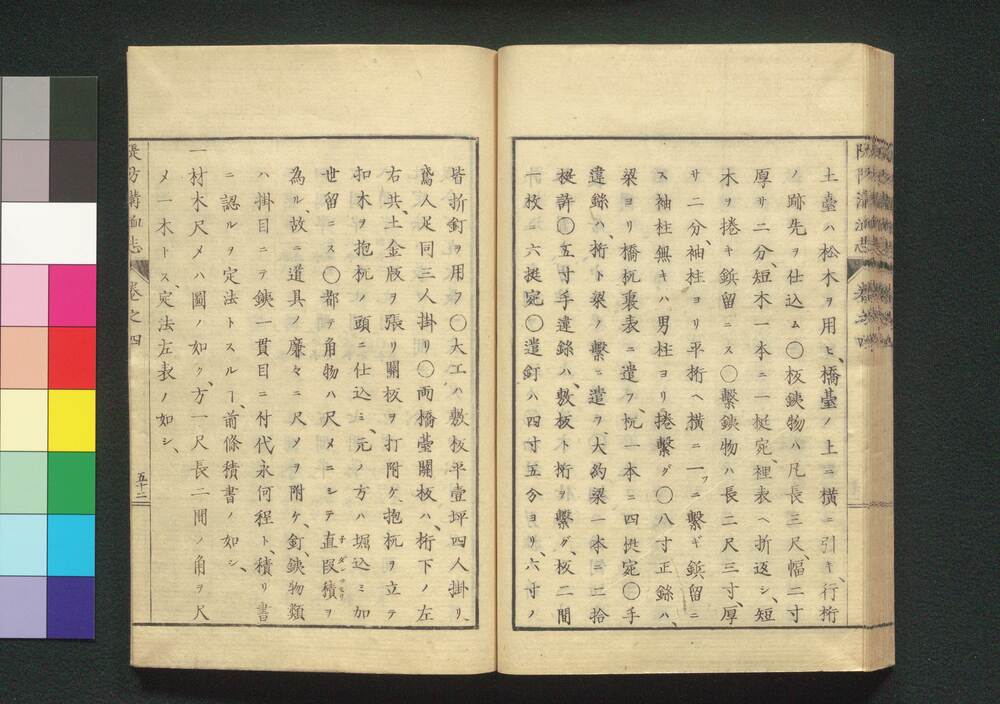 土臺ハ松木ヲ用ヒ、橋臺ノ上ニ横ニ引キ、行桁
ノ跡先ヲ仕込ム〇板鋏物ハ凡長三尺、幅二寸
厚サ二分、短木一本ニ一梃宛、裡表ヘ折返シ、短
木ヲ捲キ鋲留ニス〇繫鋏物ハ長二尺三寸、厚
サ二分、袖柱ヨリ平桁ヘ横ニ一ツニ繫ギ鋲留ニ
ス袖柱無キハ男柱ヨリ捲繫グ〇八寸正鎹ハ、
梁ヨリ橋杭裏表ニ遣フ、杭一本ニ四梃宛〇手
違鎹ハ、桁ト梁ノ繫ニ遣ヲ、大約梁一本ニ二拾
梃許〇五寸手違鎹ハ、敷板ト桁ヲ繫グ、板二間
一枚ニ六梃宛〇遣釘ハ四寸五分ヨリ、六寸ノ
皆折釘ヲ用フ〇大工ハ敷板平壹坪四人掛リ、
鳶人足同三人掛リ〇両橋臺闗板ハ、桁下ノ左
右共、土金版ヲ張リ闗板ヲ打附ケ、抱杭ヲ立テ
扣木ヲ抱杭ノ頭ニ仕込ミ、元ノ方ハ堀込ミ加
世留ニス〇都テ角物ハ尺メニシテ直段積ヲ
為ル故ニ道具ノ廉々ニ尺メヲ附ケ、釘、鋏物類
ハ掛目ニテ鋏一貫目ニ付代永何程ト、積リ書
ニ認ルヲ定法トスルヿ、前條積書ノ如シ、
一材木尺メハ圖ノ如ク、方一尺長二間ノ角ヲ尺
メ一木トス、定法左表ノ如シ、
卷之四
五十二